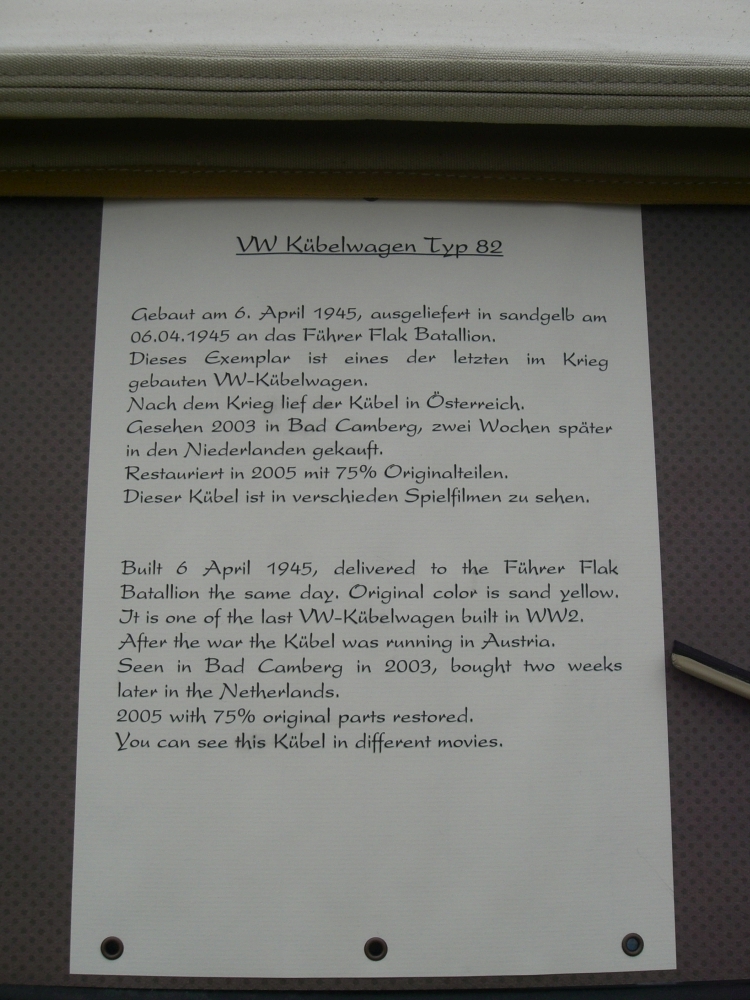 VW Kübelwagen Typ 82
Gebaut am 6. April 1945, ausgeliefert in sandgelb am
06.04.1945 an das Führer Flak Batallion.
Dieses Exemplar ist eines der letzten im Krieg
gebauten VW-Kübelwagen.
Nach dem Krieg lief der Kübel in Österreich.
Gesehen 2003 in Bad Camberg, zwei Wochen später
in den Niederlanden gekauft.
Restauriert in 2005 mit 75% Originalteilen.
Dieser Kübel ist in verschieden Spielfilmen zu sehen.
Built 6 April 1945, delivered to the Führer Flak
Batallion the same day. Original color is sand yellow.
It is one of the last VW-Kübelwagen built in WW2.
After the war the Kübel was running in Austria.
Seen in Bad Camberg in 2003, bought two weeks
later in the Netherlands.
2005 with 75% original parts restored.
You can see this Kübel in different movies.